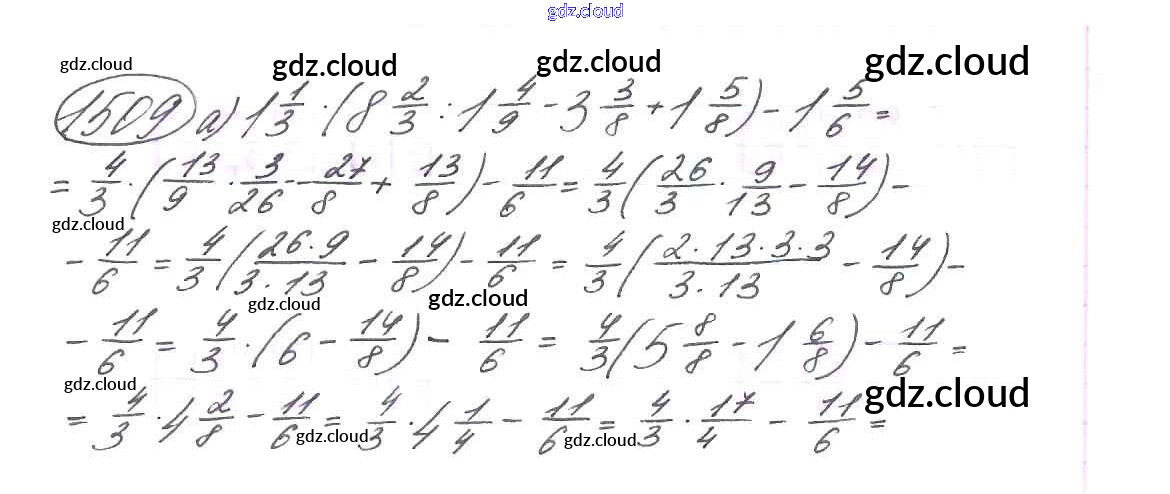 gdz.cloud
gdz.cloud gdz.cloud gdz.cloud gdz.cloud
1509 а) 1 1/3 · (8 2/3 : 1 4/9 - 3 3/8 + 1 5/8) - 1 5/6 =
= 4/3 · (13/9 · 3/26 - 27/8 + 13/8) - 11/6 = 4/3 (26/3 · 9/13 - 14/8) -
gdz.cloud
- 11/6 = 4/3 (26·9/3·13 - 14/8) - 11/6 = 4/3 (2·13·3·3/3·13 - 14/8) -
gdz.cloud gdz.cloud
- 11/6 = 4/3 · (6 - 14/8) - 11/6 = 4/3 (5 8/8 - 1 6/8) - 11/6 =
gdz.cloud gdz.cloud
= 4/3 · 4 2/8 - 11/6 = 4/3 · 4 1/4 - 11/6 = 4/3 · 17/4 - 11/6 =
gdz.cloud gdz.cloud